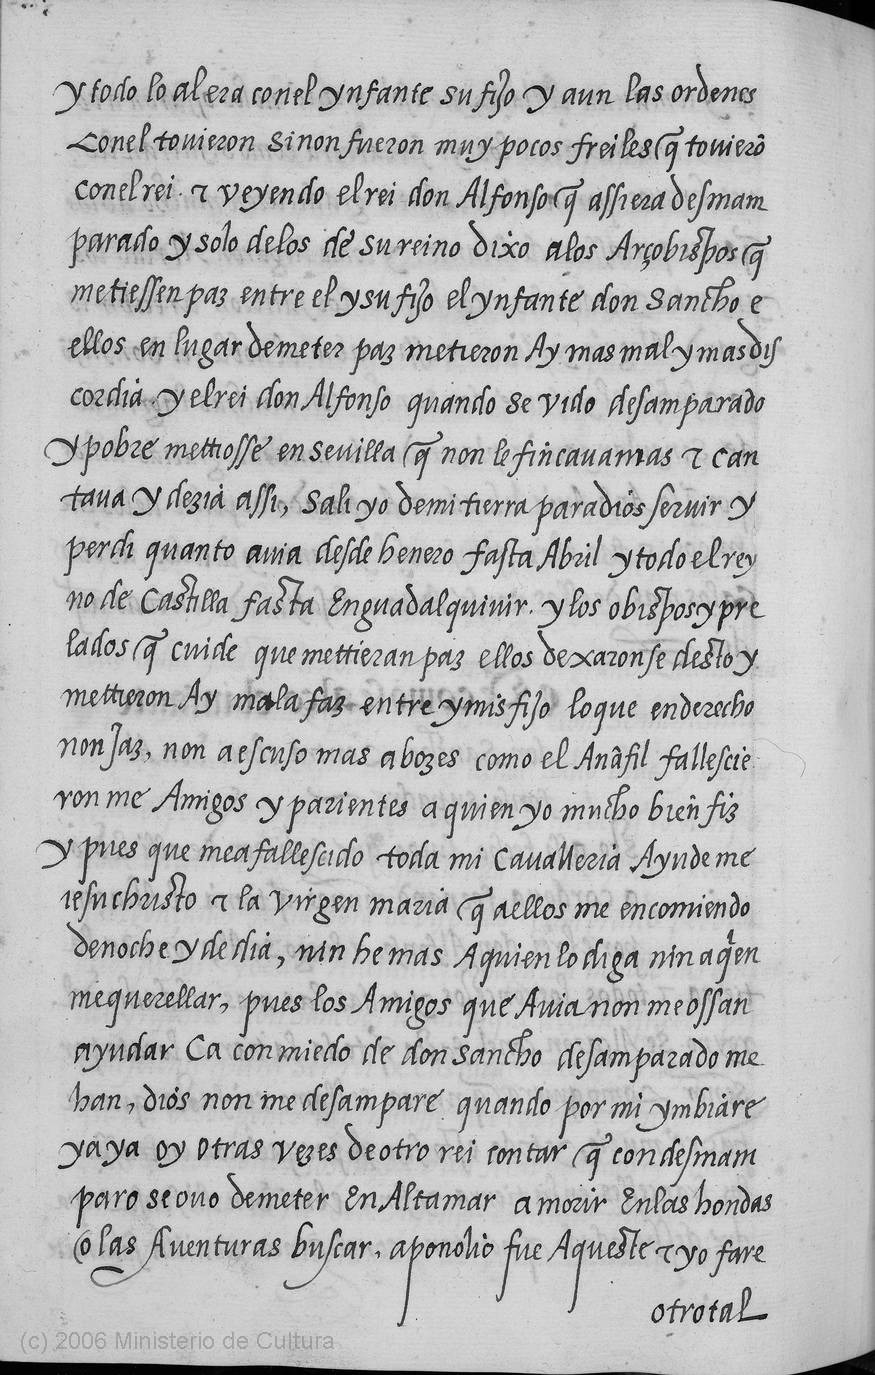 y todo lo al era con el ynfante su fijo y aun las ordenes
Con el tovieron sinon fueron muy pocos freiles q̃ toviero᷈
con el rei. ⁊ veyendo el rei don Alfonso q̃ assi era desmam
parado y solo delos de su reino dixo alos Arçobispos q̃
metiessen paz entre el y su fijo el ynfante don Sancho e
ellos en lugar de meter paz metieron Ay mas mal y mas dis
cordia. y el rei don Alfonso quando se vido desamparado
y pobre mettiosse en sevilla q̃ non le fincava mas ⁊ can
tava y dezia assi, Sali yo de mi tierra para dios servir y
perdi quanto avia desde henero fasta Abril y todo el rey
no de Castilla fasta En guadalquivir. y los obispos y pre
lados q̃ cuide que mettieran paz ellos dexaronse desto y
mettieron Ay mala faz entre y mis fijo lo que en derecho
non jaz, non a escuso mas a bozes como el Anãfil fallescie
ron me Amigos y parientes a quien yo mucho bien fiz
y pues que me a fallescido toda mi Cavalleria Ayude me
iesu christo ⁊ la Virgen maria q̃ a ellos me encomiendo
de noche y de dia, nin he mas A quien lo diga nin a qien
me querellar, pues los Amigos que Avia non me ossan
ayudar Ca con miedo de don Sancho desamparado me
han, dios non me desampare quando por mi ymbiare
ya ya oy otras vezes de otro rei contar q̃ con desmam
paro se ovo de meter En Alta mar a morir En las hondas
o las Aventuras buscar, aponolio fue Aqueste ⁊ yo fare
otro tal
(c) 2006 Ministerio de Cultura